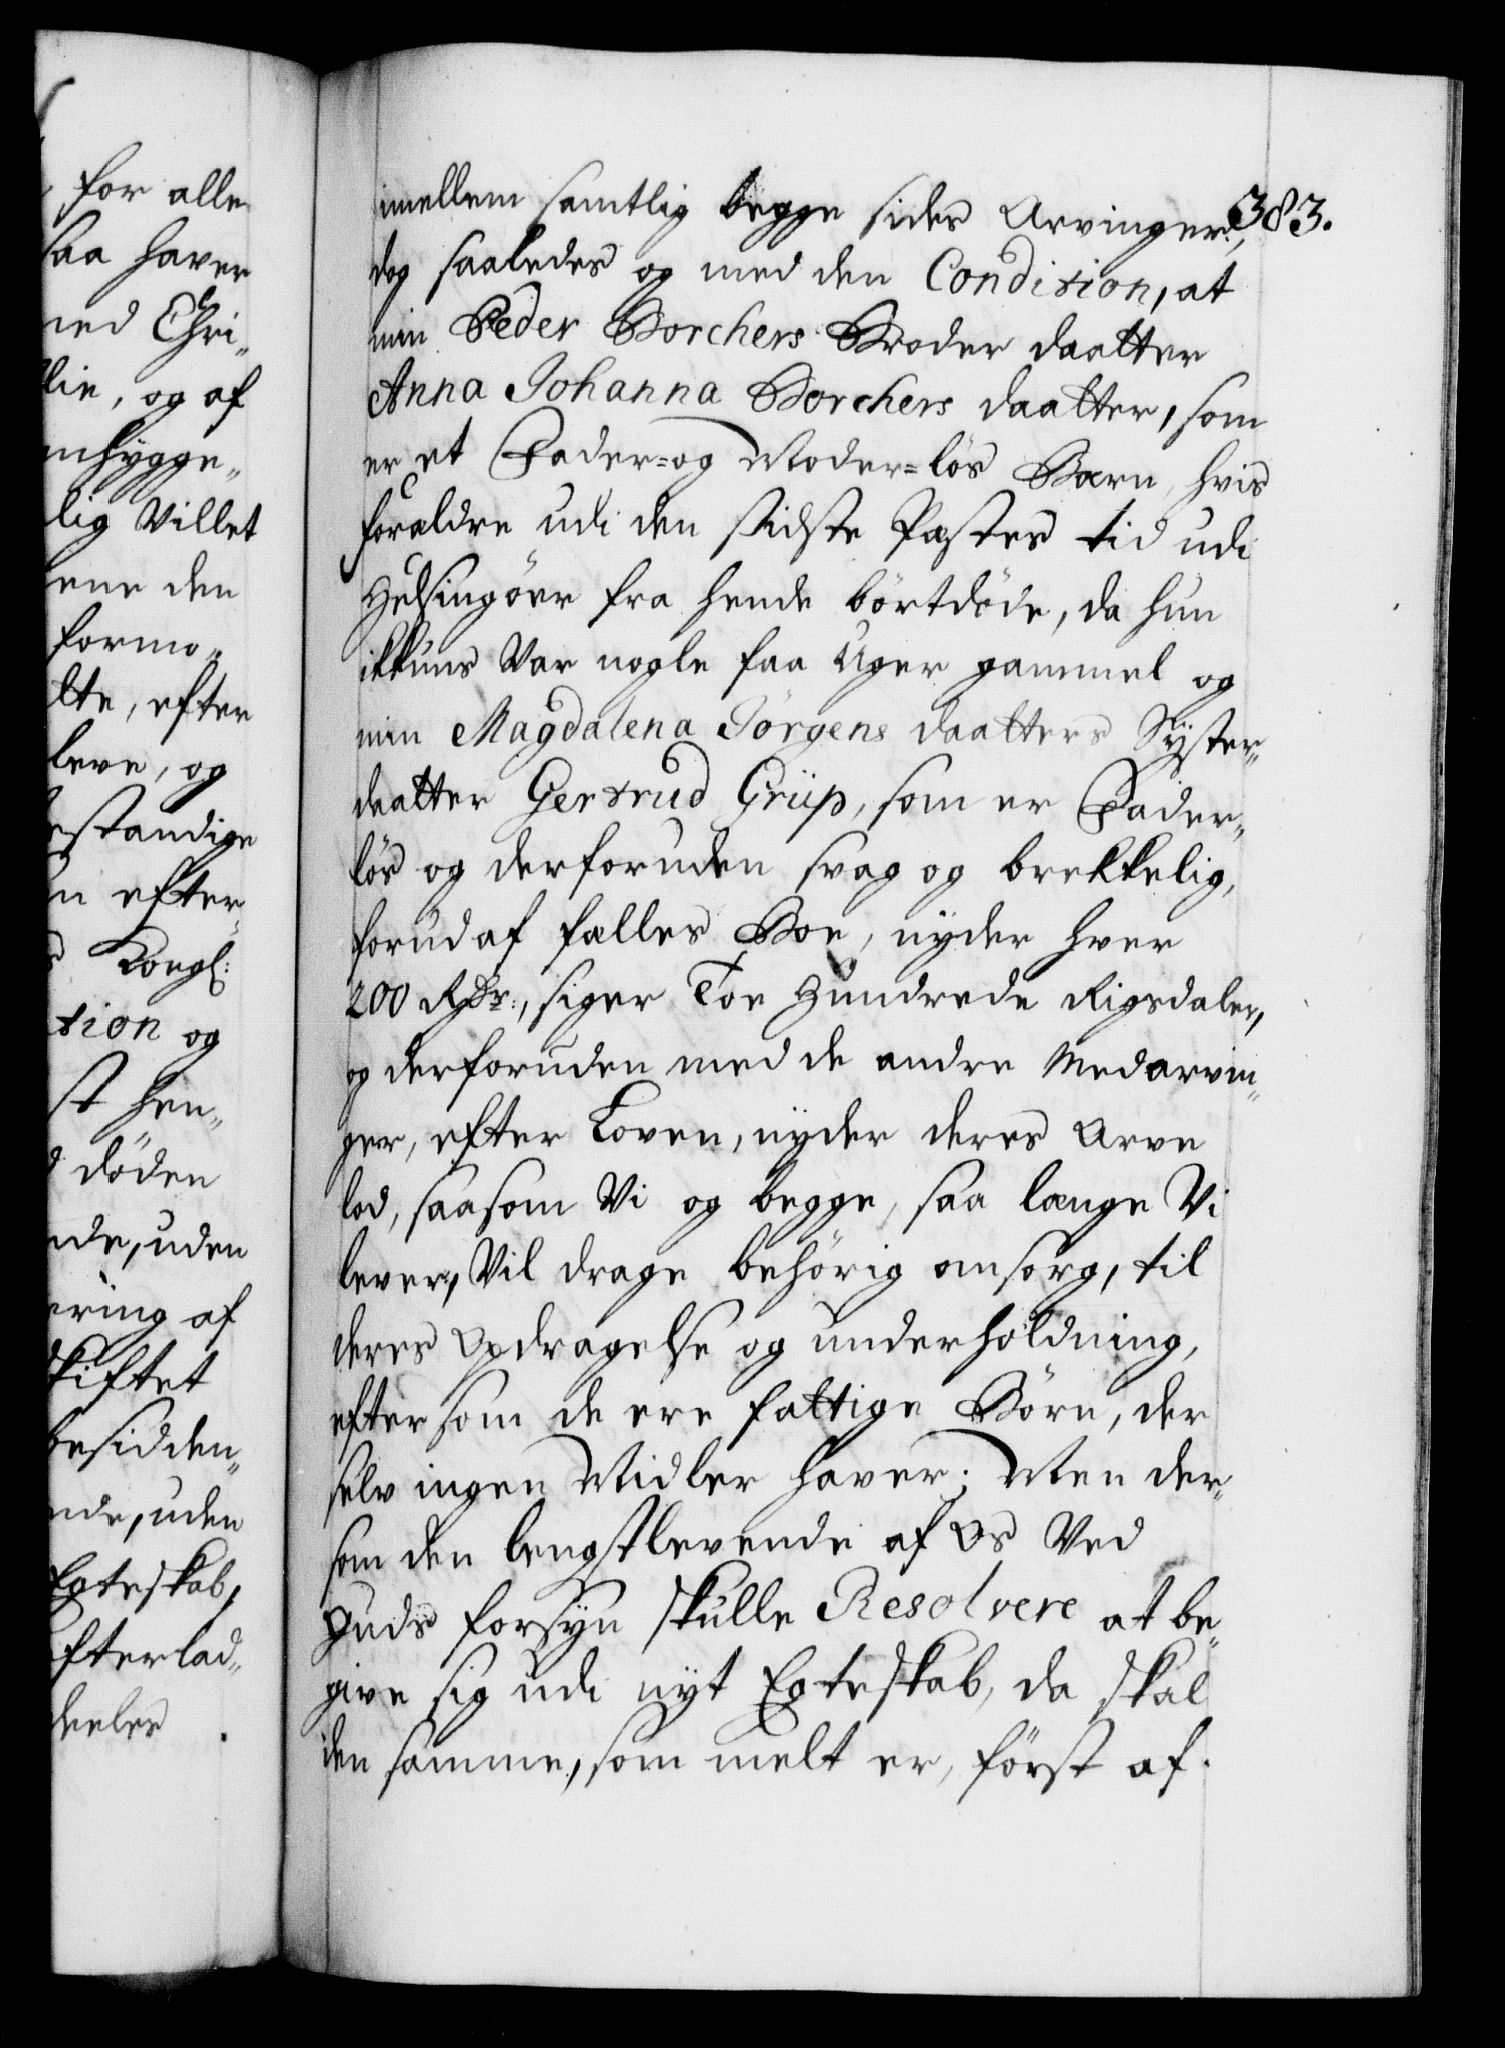 for alle
saa haver
med Chri„
lie, og af
mhygge„
lig Villet
ene den
formo„
lte, efter
leve, og
estandige
n efter„
Kongl:
tion og
st hen„
döden
nde, uden
ering af
skiftet
besidden„
nde, uden
Egteskab,
fterlad„
deeles
383.
imellem samtlig begge sides Arvinger,
dog saaledes og med den Condition, at
min Peder Borchers Broder daatter
Anna Johanna Borchers daatter, som
er et Fader= og Moder=lös Barn, hvis
foraldre udi den sidste Pestes tid udi
Helsingöer fra hende börtdöde, da hun
ikkuns Var nogle faa Uger gammel og
min Magdalena Jörgens daatters Syster„
daatter Gertrud Grüp, som er Fader„
lös og derforuden svag og brekkelig,
forud af falles Boe, nyder hver
200 Rdr:, siger Toe Hundrede Rigsdaler,
og derforuden med de andre Medarvin„
ger, efter Loven, nyder deres Arve
lod, saasom Vi og begge, saa længe Vi
lever, Vil drage behörig omsorg, til
deres Opdragelse og underholdning,
eftersom de ere fattige Börn, der
selv ingen Midler haver; Men der„
som den lengstlevende af Os Ved
Guds forsyn skulle Resolvere at be„
give sig udi nyt Egteskab, da skal
den samme, som melt er, först af„